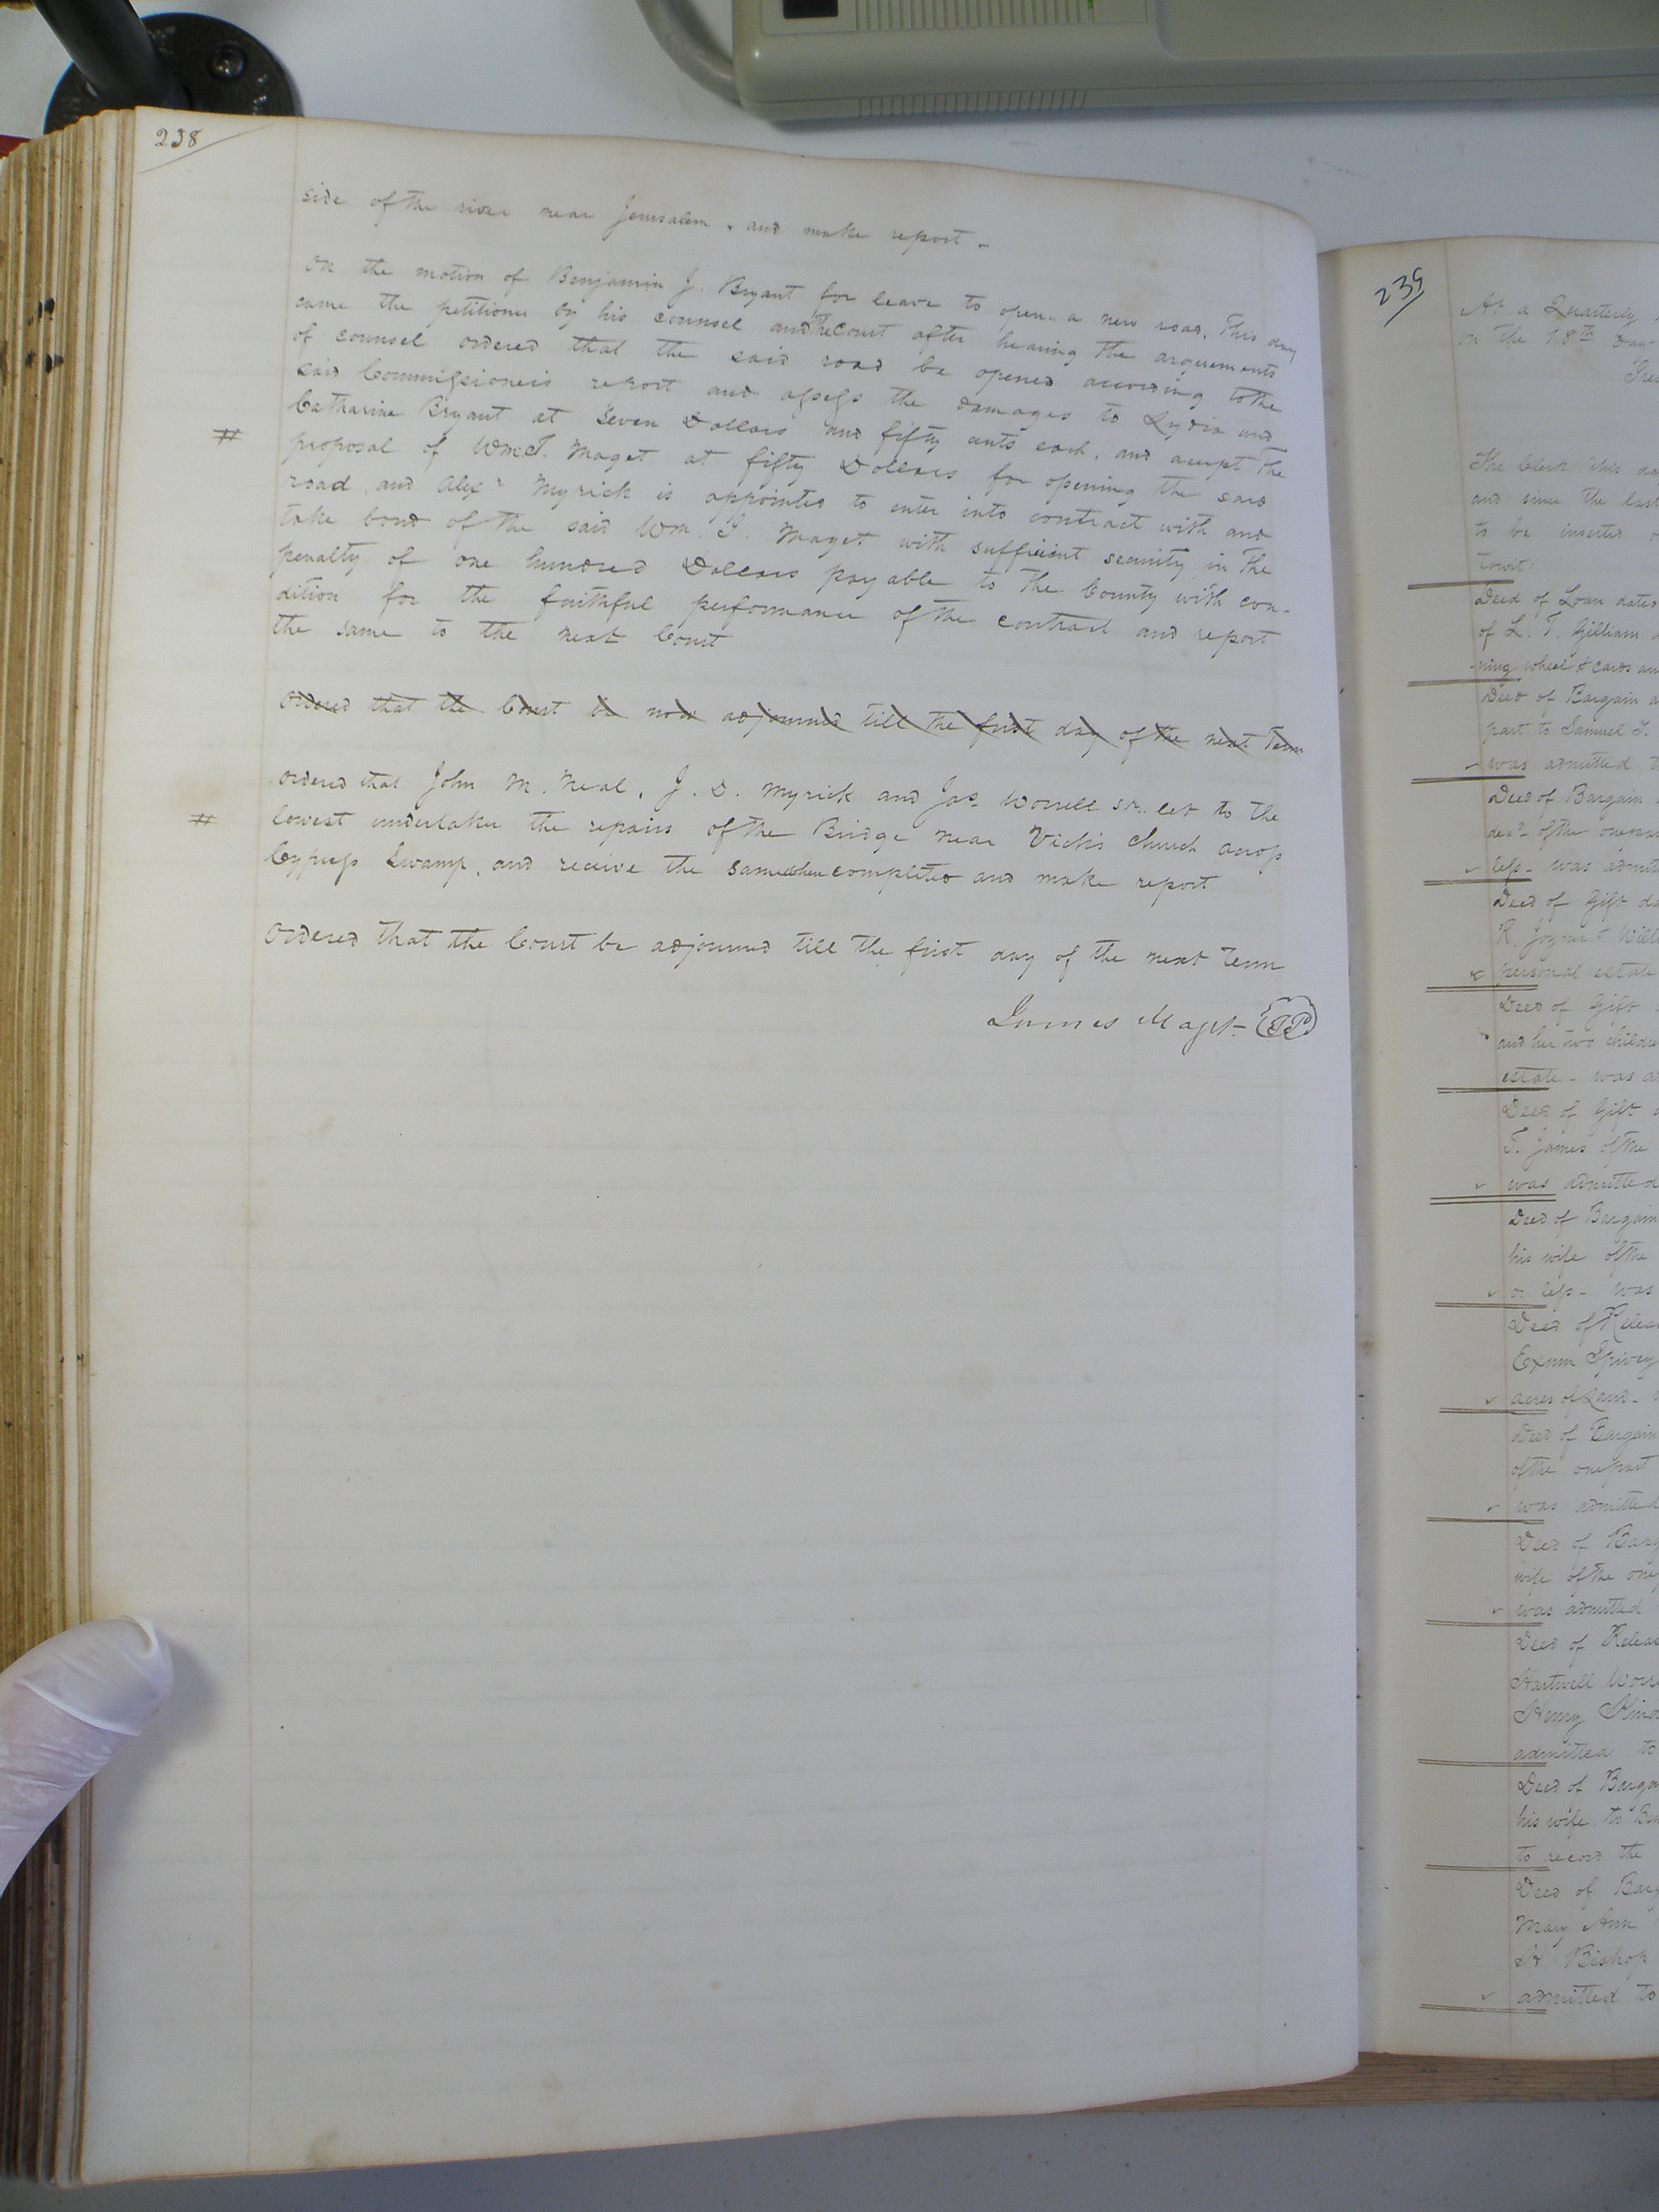 238
side of the river near Jerusalem, and make report -
On the motion of Benjamin J. Bryant for leave to open a new road. This day
came the petitioner by his counsel and the Court after hearing the arguements
of counsel ordered that the said road be opened according to the
said Commissioners report and assess the damages to Lydia and
Catharine Bryant at Seven Dollars and fifty cents each, and accept the
# proposal of Wm. T. Maget at fifty Dollars for opening the said
road, and Alexr Myrick is appointed to enter into contract with and
take bond of the said Wm. T. Maget with sufficient security in the
penalty of one hundred Dollars payable to the County with con-
dition for the faithful performance of the contract and report
the same to the next Court
Ordered that the Court be now adjourned till the first day of the next Term
Ordered that John M. Neal, J. D. Myrick and Jas. Worrell Sr. let to the
# lowest undertaker the repairs of the Bridge near Vick's Church across
Cypress Swamp, and receive the same when completed and make report
Ordered that the Court be adjourned till the first day of the next Term
James Maget
239
At a Quarterly
on the 18th day
Pres
The Clerk this day
and since the last
to be inserted
towit:
Deed of Loan dated
of L. T. Gilliam
ning wheel & cards and
Deed of Bargain
part to Samuel T.
was admitted to
Deed of Bargain
decd. of the one part
less - was admitt
Deed of Gift da
R. Joyner & Willi
personal estate
Deed of Gift
and her two children
estate - was a
Deed of Gift
T. James of the
was admitted
Deed of Bargain
his wife of the
or less - was
Deed of Relea
Exum Spivey
acres of Land -
Deed of Bargain
of the one part
was admitted
Deed of Barg
wife of the one
was admitted
Deed of Releas
Hartwell Worr
Henry
admitted to
Deed of Barga
his wife to Ben
to record the
Deed of Barg
Mary Ann
H Bishop
admitted to